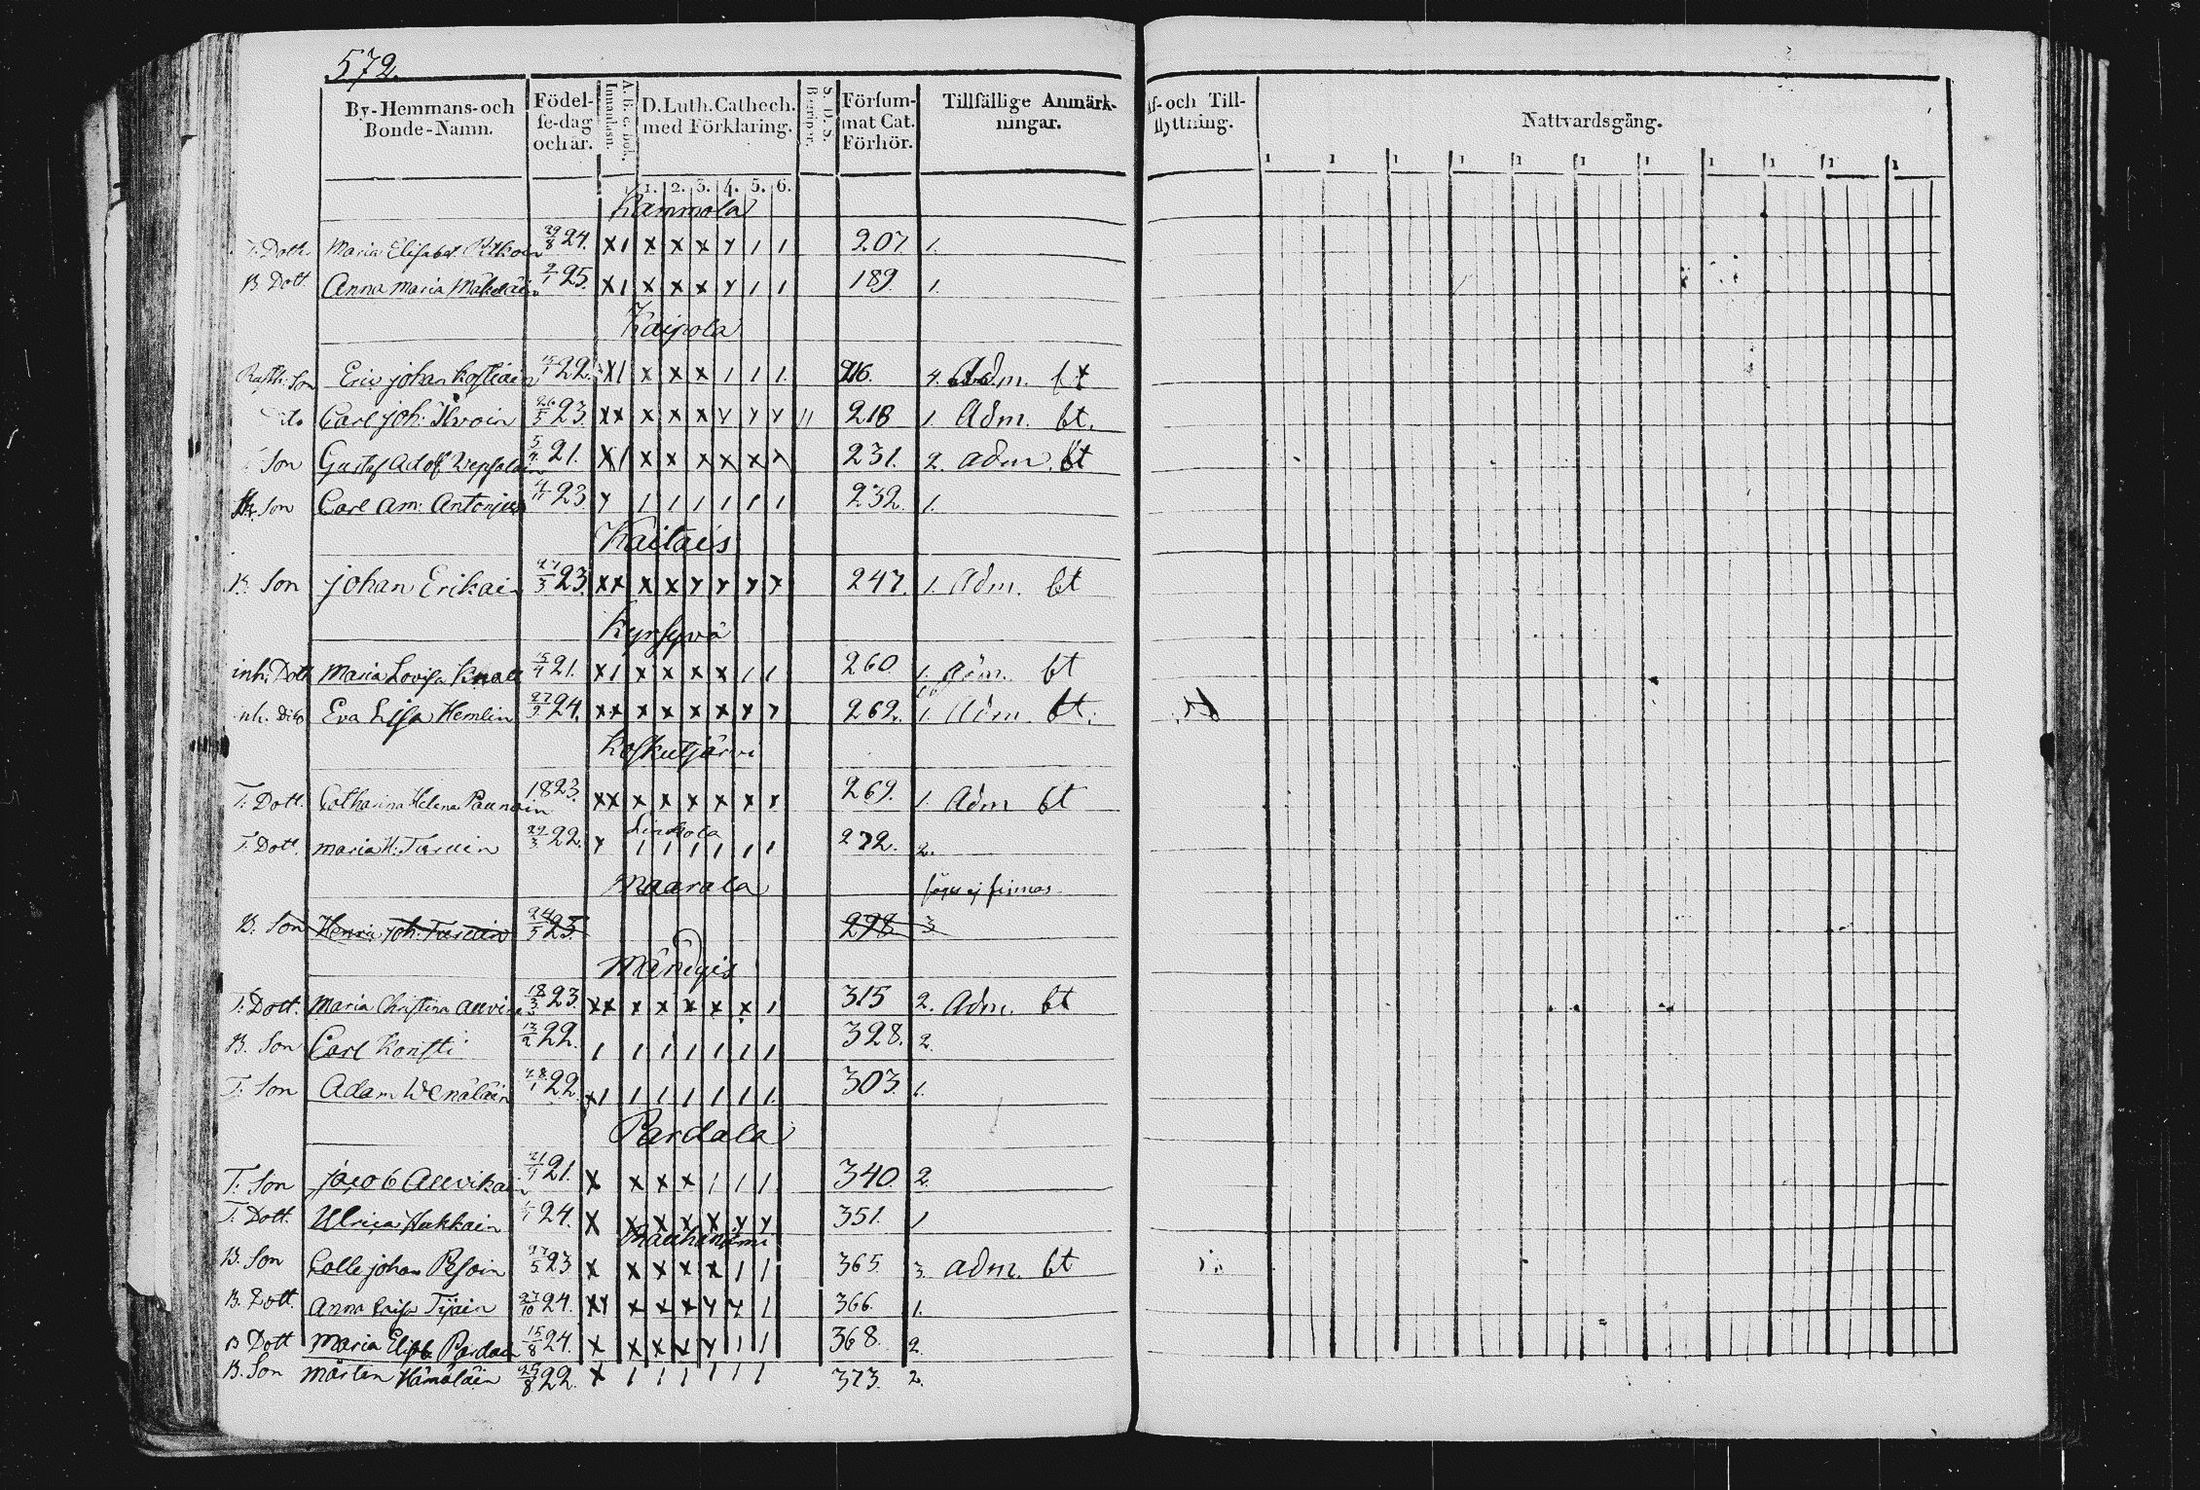 572.
By-Hemmans-och Bonde-Namn. Födelse-dag och år. A.b.c. bok. Innanläsn. D. Luth. Cathech. med Förklaring. S.D.S. Begrepp. Försummat Cat. Förhör. Tillfällige Anmärkningar. Af- och Tillflyttning. Nattvardsgång.
1. 2. 3. 4. 5. 6.
Kammola
T. Dott. Maria Elisabet 29/8 24. x 1 x x x y 1 1 207 1.
B. Dott Anna Maria 2/1 25. x 1 x x x y 1 1 189 1.
Kaipola
Son Eric johan Kostiain 22. x 1 x x x 1 1 1 216. 4. Adm. bt
Dito Carl joh: Ilvoin 26/5 23. x x x x x y y y 11 218 1. Adm. bt.
Son Gustaf Adolf Wepsäläin 21. x 1 x x x x x x 231. 2. adm. bt
Son Carl Am: Antonius 4/11 23 y 1 1 1 1 1 1 232. 1.
Kaitais
B. Son johan Erikain 27/3 23. x x x x y y y y 247. 1. Adm. bt
Kyrsyvä
inh. Dott Maria Lovisa Knall 15/4 21. x 1 x x x x 1 1 260 1. Adm. bt
inh. Dito Eva Lisa Hemlin 24. x x x x x x y y 262. 1. Adm. bt.
Koskutjärvi
T. Dott. Catharina Helena Paunoin 1823. x x x x x x x x 269. 1. Adm bt
Linkola
T. Dott. maria H: Tarvain 29/3 22. y 1 1 1 1 1 1 272. 2.
Maarala ej finnas
B. Son Henric joh: Tarvain 24/5 23. 298 3
Mändyis
T. Dott. Maria Christina Auvine 18/3 23 x x x x x x x 1 315 2. Adm. bt
B. Son Carl Konsti 13/2 22. 1 1 1 1 1 1 1 328. 2.
T. Son Adam Wenäläin 28/1 22. x 1 1 1 1 1 1 1 303. 1.
Pardala
T. Son jacob Auvikain 21. x x x x 1 1 1 340 2.
T. Dott. Ulrica Hukkain 24. x x x x x y y 351. 1
Rauhaniemi
B. Son Calle johan 27/5 23 x x x x x 1 1 365 3. adm. bt
B. Dott. Anna Lisa Tijain 27/10 24. x y x x x y y 1 366. 1.
B Dott Maria Elisb Pardain 15/8 24. x x x x y 1 1 368. 2.
B. Son Mårten Hämäläin 25/8 22. x 1 1 1 1 1 1 373. 2.